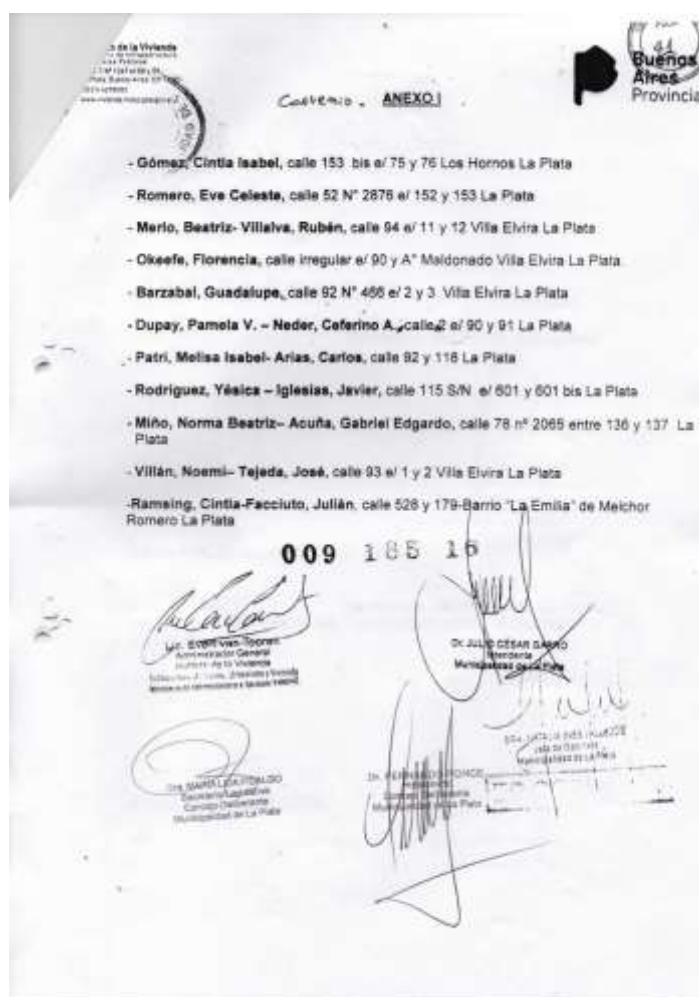 de la Vivienda
Buenos
Aires
Provincia
41
Convenio. ANEXO I
- Gómez, Cintia Isabel, calle 153 bis e/ 75 y 76 Los Hornos La Plata
- Romero, Eve Celeste, calle 52 N° 2876 e/ 152 y 153 La Plata
- Merlo, Beatriz- Villalva, Rubén, calle 94 e/ 11 y 12 Villa Elvira La Plata
- Okeefe, Florencia, calle irregular e/ 90 y A° Maldonado Villa Elvira La Plata.
- Barzabal, Guadalupe, calle 92 N° 466 e/ 2 y 3 Villa Elvira La Plata
- Dupay, Pamela V. – Neder, Ceferino A., calle 2 e/ 90 y 91 La Plata
- Patri, Melisa Isabel- Arias, Carlos, calle 92 y 116 La Plata
- Rodriguez, Yésica – Iglesias, Javier, calle 115 S/N e/ 601 y 601 bis La Plata
- Miño, Norma Beatriz– Acuña, Gabriel Edgardo, calle 78 nº 2065 entre 136 y 137 La
Plata
- Villán, Noemi– Tejeda, José, calle 93 e/ 1 y 2 Villa Elvira La Plata
-Ramsing, Cintia-Facciuto, Julián, calle 526 y 179-Barrio "La Emilia" de Melchor
Romero La Plata
009 185 16
Lic. Evert van Tooren
Administrador General
Instituto de la Vivienda
Dr. JULIO CÉSAR GARRO
Intendente
Municipalidad de La Plata
Municipalidad de La Plata
Secretaria Legislativa
Concejo Deliberante
Municipalidad de La Plata
Dr. FERNANDO PONCE